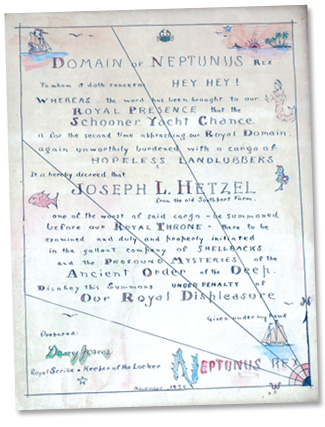 DOMAIN OF NEPTUNUS REX
To whom it doth concern: HEY HEY!
WHEREAS the word has been brought to our
ROYAL PRESENCE that the
SCHOONER YACHT CHANCE
is for the second time approaching our Royal Domain,
again unworthily burdened with a cargo of
HOPELESS LANDLUBBERS
It is hereby decreed that
JOSEPH L. HETZEL
from the old Southport Farm,
one of the worst of said cargo - be summoned
before our ROYAL THRONE - there to be
examined and duly and properly initiated
in the gallant company of SHELLBACKS
and the PROFOUND MYSTERIES of the
ANCIENT ORDER of the DEEP.
Disobey this Summons UNDER PENALTY of
OUR ROYAL DISPLEASURE
Given under my hand
Prepared:
Davy Jones
Royal Scribe & Keeper of the Locker
NEPTUNUS REX
November